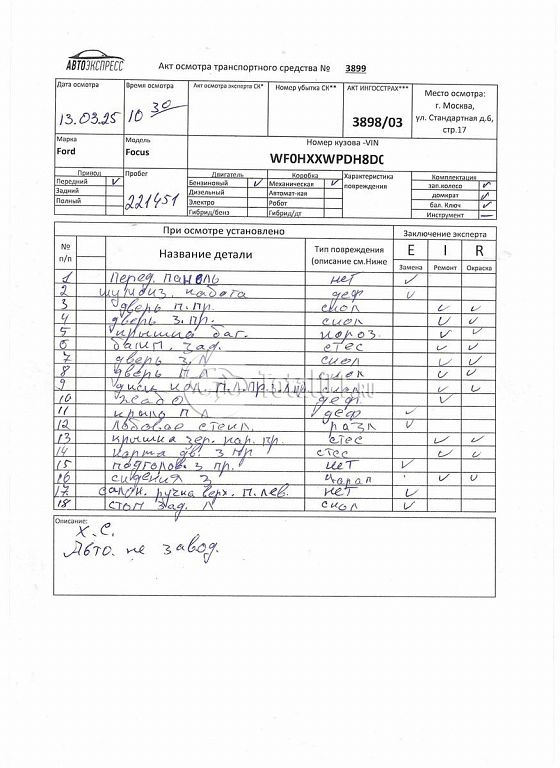 АВТОЭКСПРЕСС
Акт осмотра транспортного средства № 3899
Дата осмотра Время осмотра Акт осмотра эксперта СК* Номер убытка СК** АКТ ИНГОССТРАХ*** Место осмотра:
г. Москва,
ул. Стандартная д.6,
стр.17
13.03.25 10 30 3898/03
Марка Модель Номер кузова -VIN
Ford Focus WF0HXXWPDH8DC
Привод Пробег Двигатель Коробка Характеристика повреждения Комплектация
Передний ✓ Бензиновый ✓ Механическая ✓ зап.колесо ✓
Задний Дизельный Автомат-кая домкрат ✓
Полный 221451 Электро Робот бал. Ключ ✓
Гибрид/бенз Гибрид/дт Инструмент —
При осмотре установлено Заключение эксперта
№ п/п Название детали Тип повреждения (описание см.Ниже E I R
Замена Ремонт Окраска
1 Перед панель нет ✓
2 деф ✓
3 дверь п.пр. скол ✓ ✓
4 дверь з.пр. скол ✓ ✓
5 крышка баг. короз. ✓ ✓
6 бамп. зад. стес ✓ ✓
7 дверь з.л скол ✓ ✓
8 дверь п л скол ✓ ✓
9 диск кол. п.л. скол ✓ ✓
10 жабо деф. ✓
11 крыло п л деф ✓
12 лобовое стекл. разл ✓
13 крышка зер. нар. пр. стес ✓ ✓
14 карта дв. з пр стес ✓ ✓
15 подголов. з пр. нет ✓
16 сидения з царап ✓ ✓
17 салон. ручка верх. п.лев. нет ✓
18 стоп зад. л скол ✓
Описание:
х.с.
Авто. не завод.